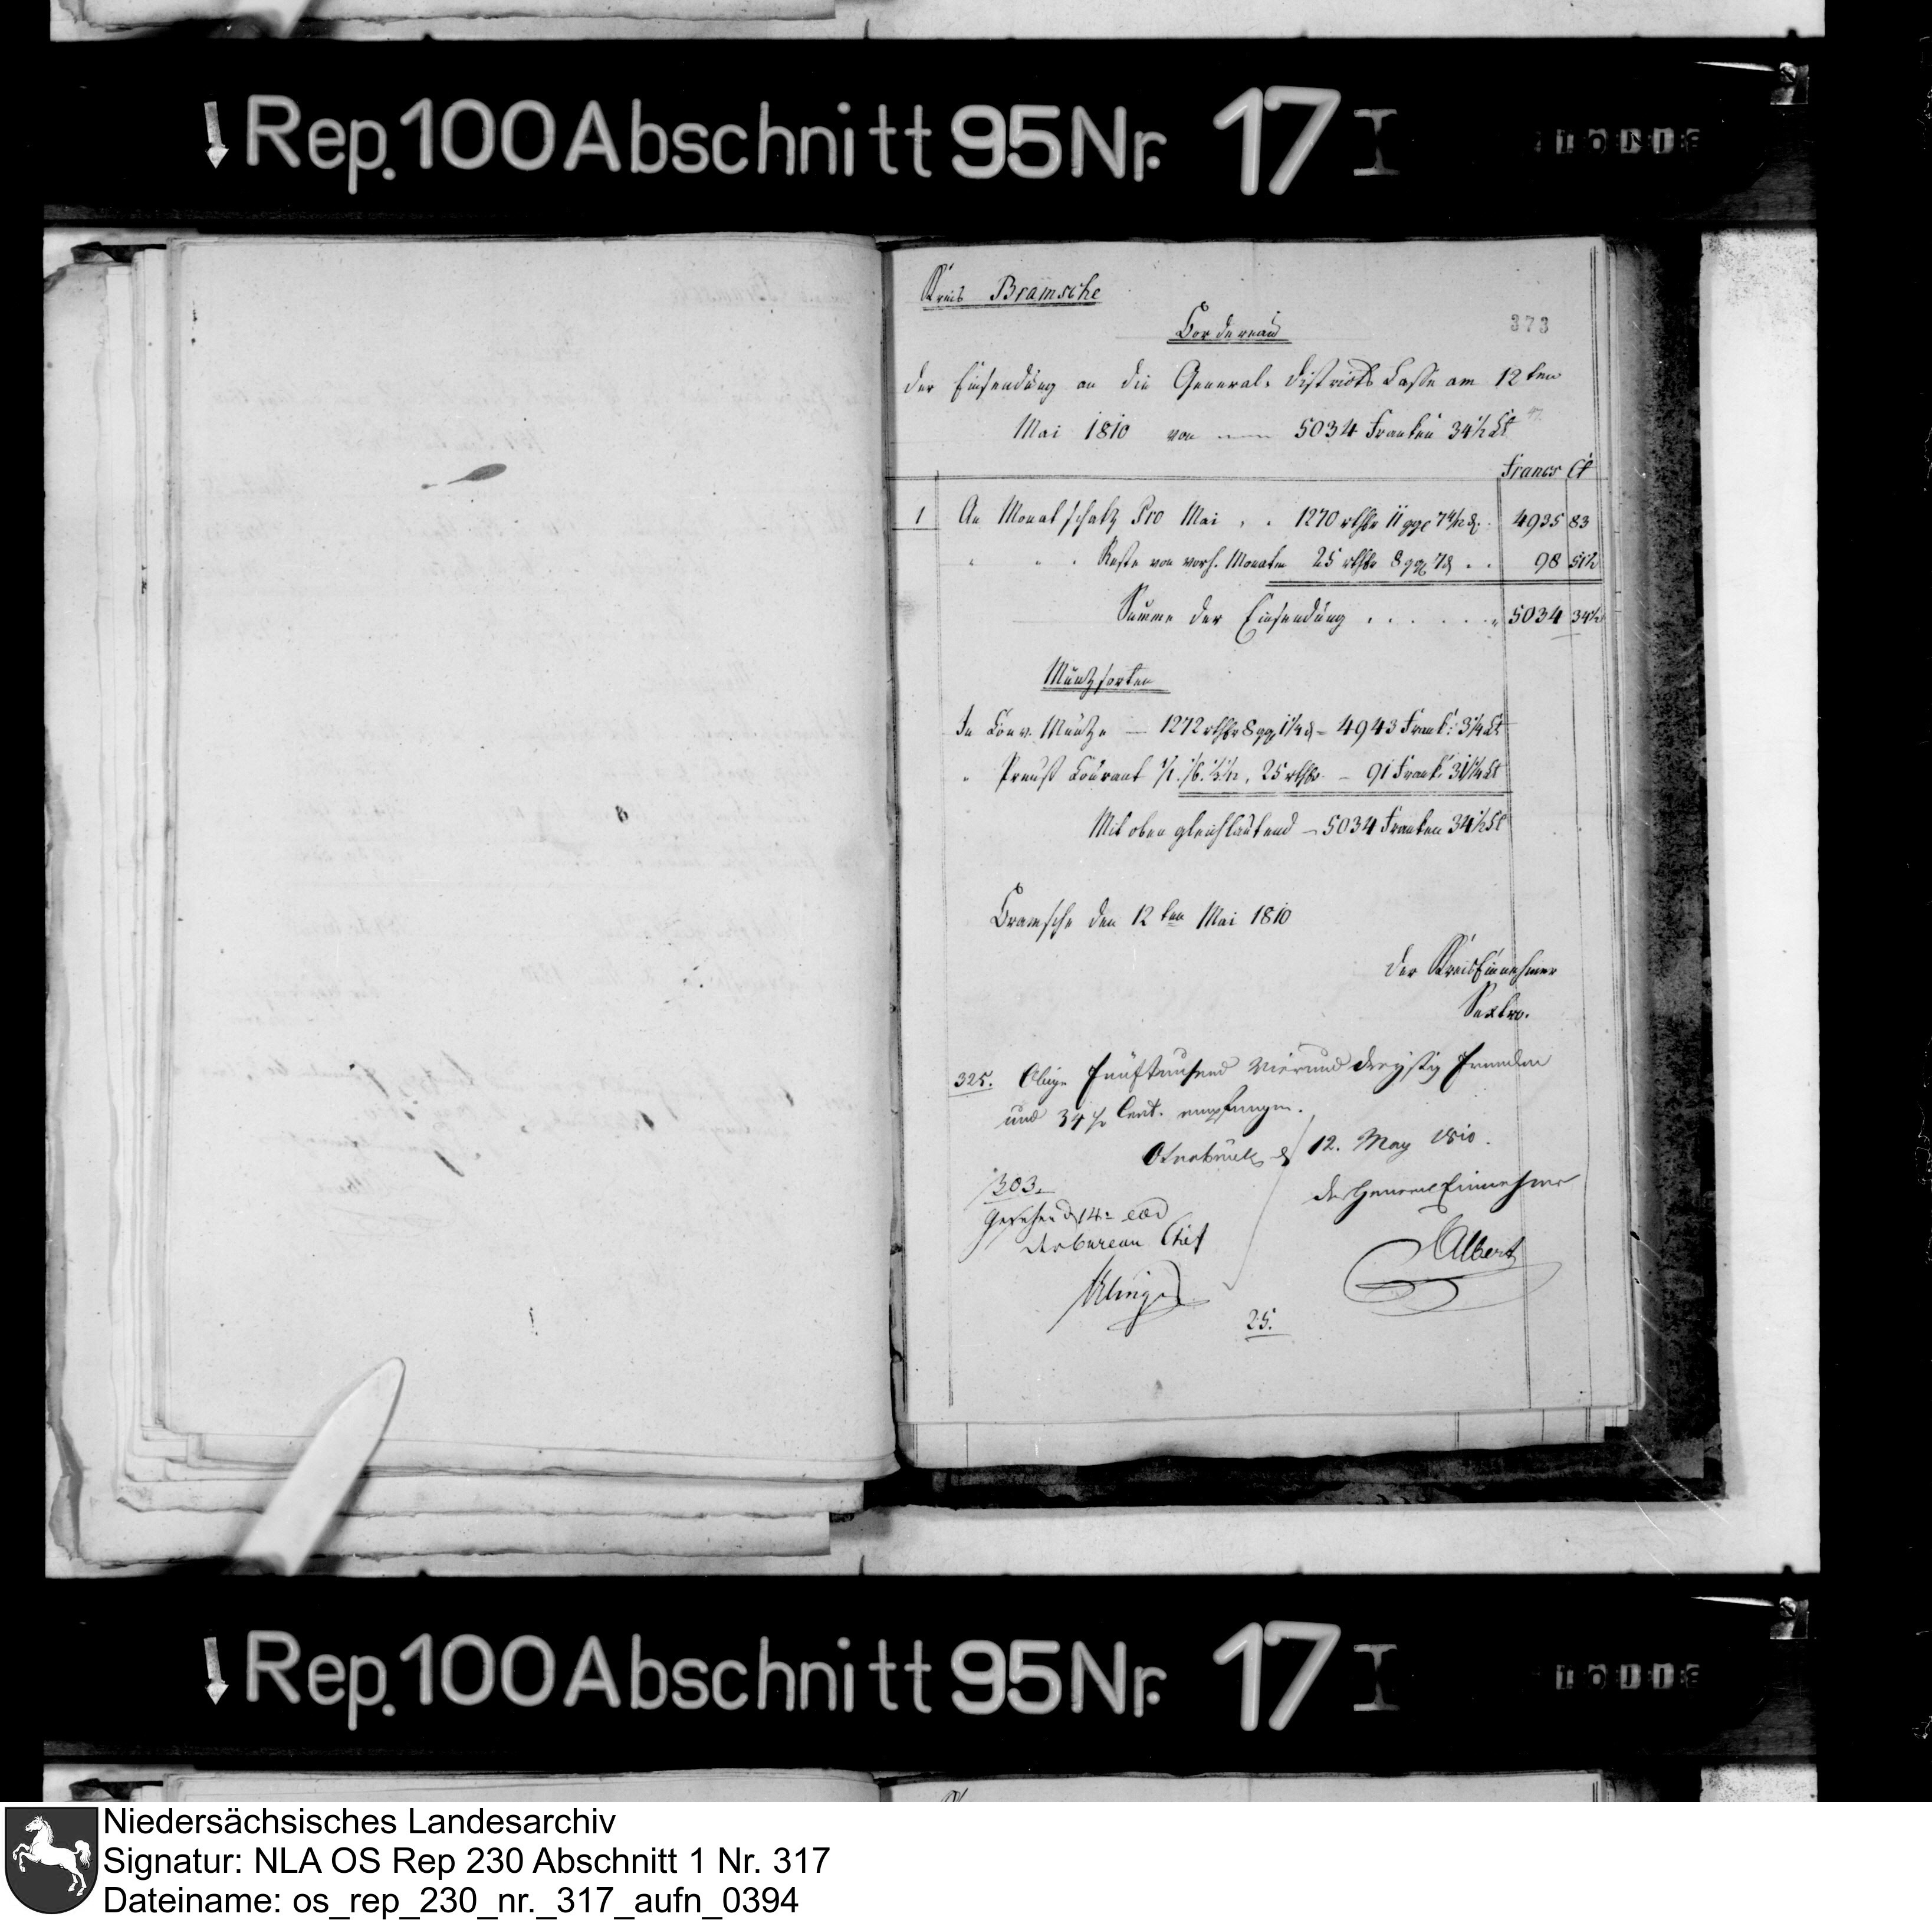 Rep. 100 Abschnitt 95 Nr. 17 I
Kreis Bramsche
373
Bordereau
der Einsendung an die General-Districts Casse am 12ten
Mai 1810 von 5034 Franken 34½ Ct
Francs Ct
1 An Monatschatz Pro Mai . . 1270 rthlr 11 ggl 7 4/12 d. 4935 83
" " " Reste von vorh. Monaten 25 rthlr 8 ggl 7 d . . 98 51½
Summe der Einsendung . . . . . . 5034 34½
Müntzsorten
In Conv. Müntze — 1272 rthlr 8 ggl 1¼ d – 4943 Frank: 3¼ Ct
" Preuß Courant 25 rthlr – 91 Frank: 31¼ Ct
Mit oben gleichlautend – 5034 Franken 34½ Ct
Bramsche den 12ten Mai 1810
Der KreisEinnehmer
Sextro.
325. Obige Fünftausend Vierunddreyßig Franken
und 34½ Cent. empfangen.
Osnabrück d 12. May 1810.
der General Einnehmer
Albert
303.
Gesehen d 14n eod
der bureau Chef
25.
Rep. 100 Abschnitt 95 Nr. 17 I
Niedersächsisches Landesarchiv
Signatur: NLA OS Rep 230 Abschnitt 1 Nr. 317
Dateiname: os_rep_230_nr._317_aufn_0394